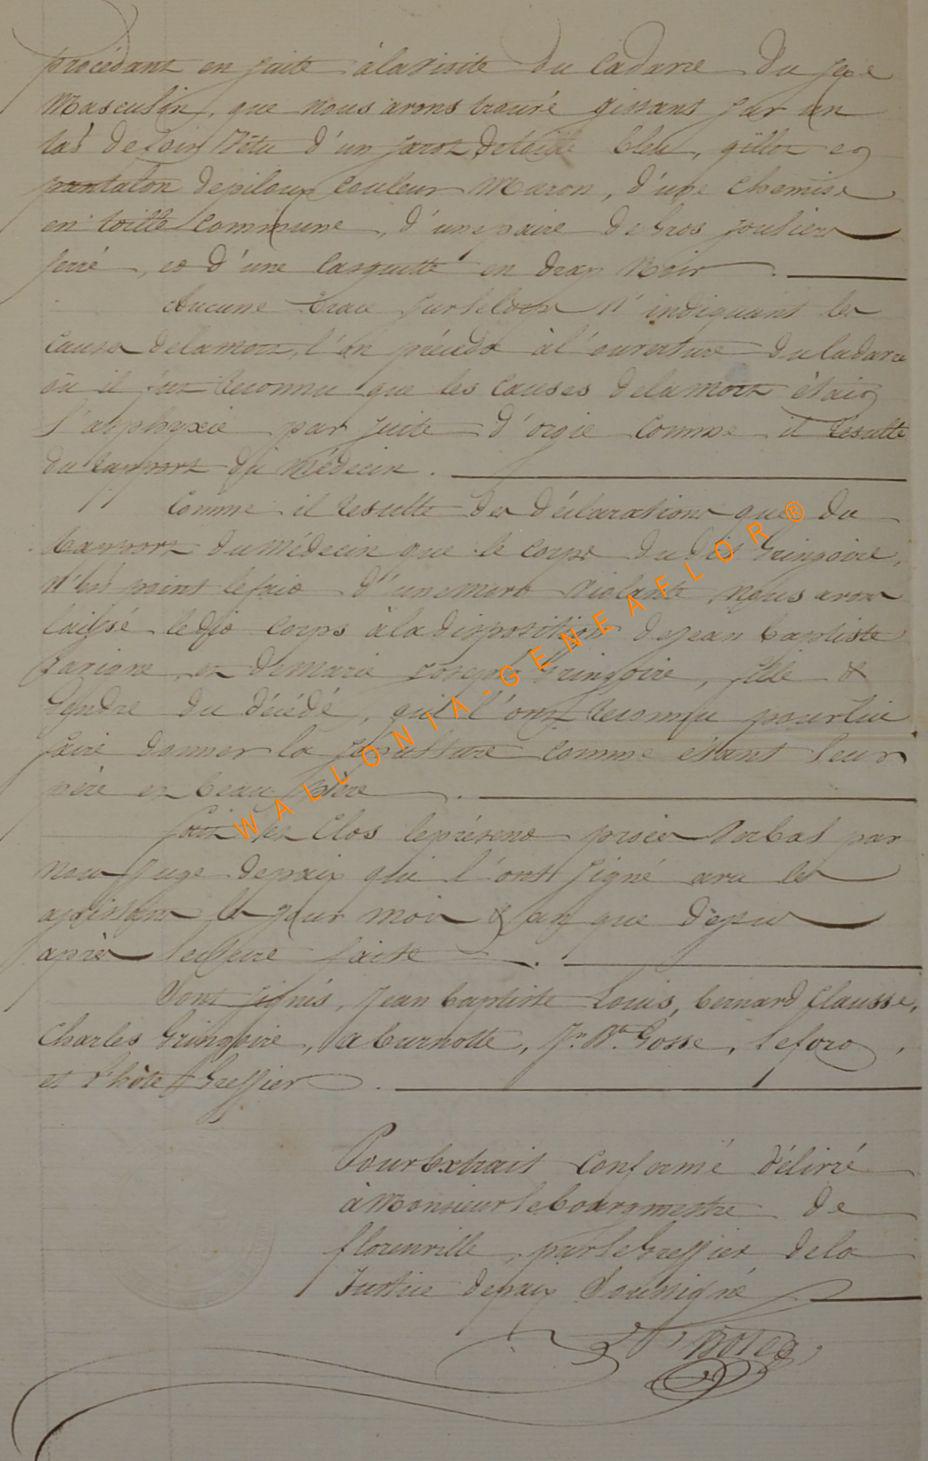 procédant en suite à la visite du cadavre du sexe
Masculin, que nous avons trouvé gissant sur un
tas de foin vêtu d'un sarot de toille bleu, gillet et
pantalon de pilou couleur Maron, d'une chemise
en toille commune, d'une paire de Gros souliers
ferré, et d'une Casquette en drap Noir.
Aucune trace sur le Corps N'indiquant les
causes de la mort, l'on procéda à l'ouverture du Cadavre
où il fut reconnu que les causes de la mort était
l'asphyxie par suite d'orgie comme il résulte
du rapport du Médecin.
Comme il résulte des déclarations que du
Rapport du Médecin que le corps du dit Gringoire,
N'est point le fait d'une mort violante, nous avons
laissé le dit corps à la disposition de Jean Baptiste
et de Marie Joseph Gringoire, fille &
Gendre du décédé, qui l'ont reconnu pour lui
faire donner la sépulture comme étant leur
père et beau père.
Fait et Clos le présent procès Verbal par
Nous Juge de paix qui l'ont signé avec les
assistans les jour mois & an que dessus
après lecture faite.
Sont signés, Jean Baptiste Louis, bernard Clausse,
Charles Gringoire, a burnotte, Jn. Bte. Gosse, Lefort,
et L'hôte Greffier.
Pour Extrait conforme délivré
à Monsieur le Bourgmestre de
florenville, par le Greffier de la
Justice de paix Soussigné
WALLONIA-GENEAFLOR®